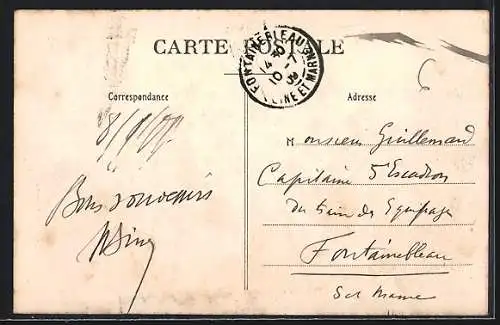 CARTE POSTALE
FONTAINEBLEAU
14
10 -7
SEINE ET MARNE
6
Correspondance
Adresse
Monsieur Guillemard
Capitaine 5e Escadron
du train des Equipages
Fontainebleau
Set Marne
Bons souvenirs